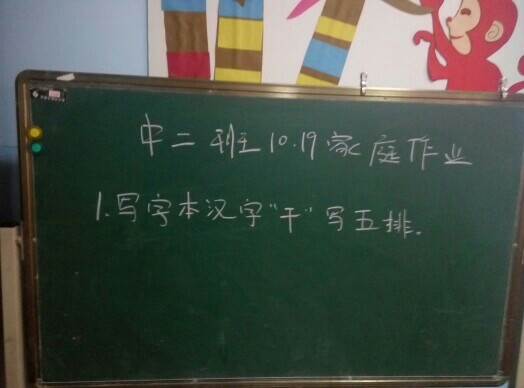 中二班10.19家庭作业
1.写字本汉字“干”写五排.